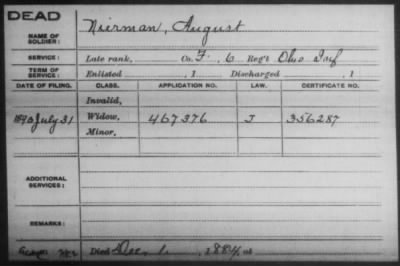 DEAD
NAME OF SOLDIER: Nierman, August
SERVICE: Late rank, Co. F, 6 Reg't Ohio Inf
TERM OF SERVICE: Enlisted , 1 Discharged , 1
DATE OF FILING. CLASS. APPLICATION NO. LAW. CERTIFICATE NO.
Invalid,
1893 July 31 Widow, 467376 J 356287
Minor,
ADDITIONAL SERVICES:
REMARKS:
Died Dec, 1, 1884, at